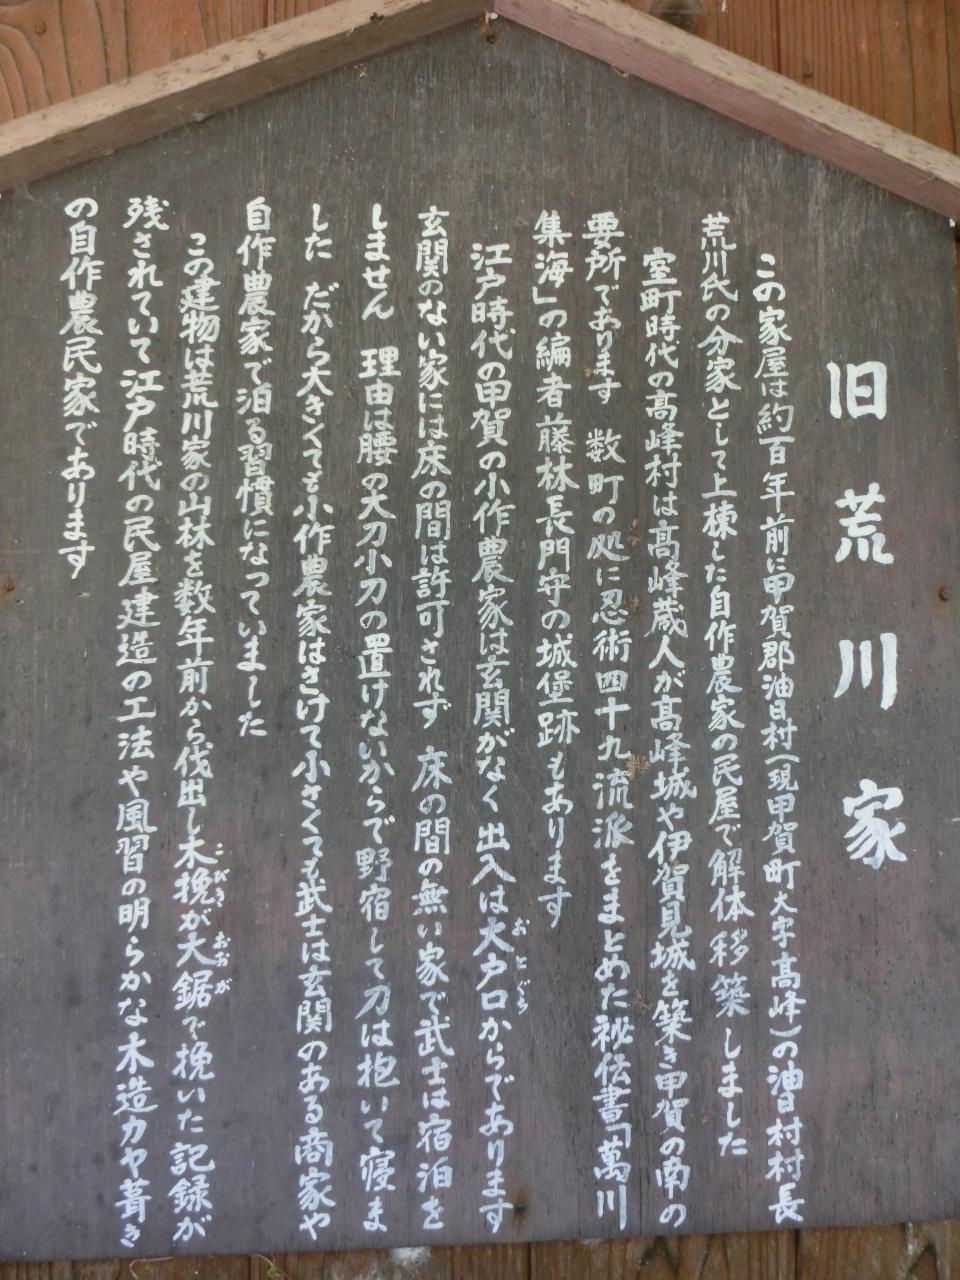 旧荒川家
この家屋は約百年前に甲賀郡油日村(現甲賀町大字高峰)の油日村村長
荒川氏の分家として上棟した自作農家の民屋で解体移築しました
室町時代の高峰村は高峰蔵人が高峰城や伊賀見城を築き甲賀の南の
要所であります 数町の処に忍術四十九流派をまとめた祕伝書「萬川
集海」の編者藤林長門守の城堡跡もあります
江戸時代の甲賀の小作農家は玄関がなく出入は大戸口からであります
おとぐち
玄関のない家には床の間は許可されず 床の間の無い家で武士は宿泊を
しません 理由は腰の大刀小刀の置けないからで野宿して刀は抱いて寝ま
した だから大きくても小作農家はさけて小さくても武士は玄関のある商家や
自作農家で泊る習慣になっていました
この建物は荒川家の山林を数年前から伐出し木挽が大鋸で挽いた記録が
こびき おおが
残されていて江戸時代の民屋建造の工法や風習の明らかな木造カや葺き
の自作農民家であります